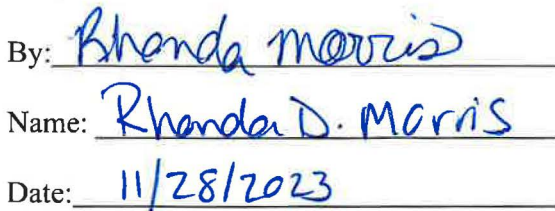 By: Rhonda Morris
Name: Rhonda D. Morris
Date: 11/28/2023